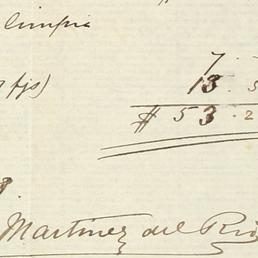 Limpia
7.
fjs) 13. 5
$ 53.2
8.
Martinez del Rio